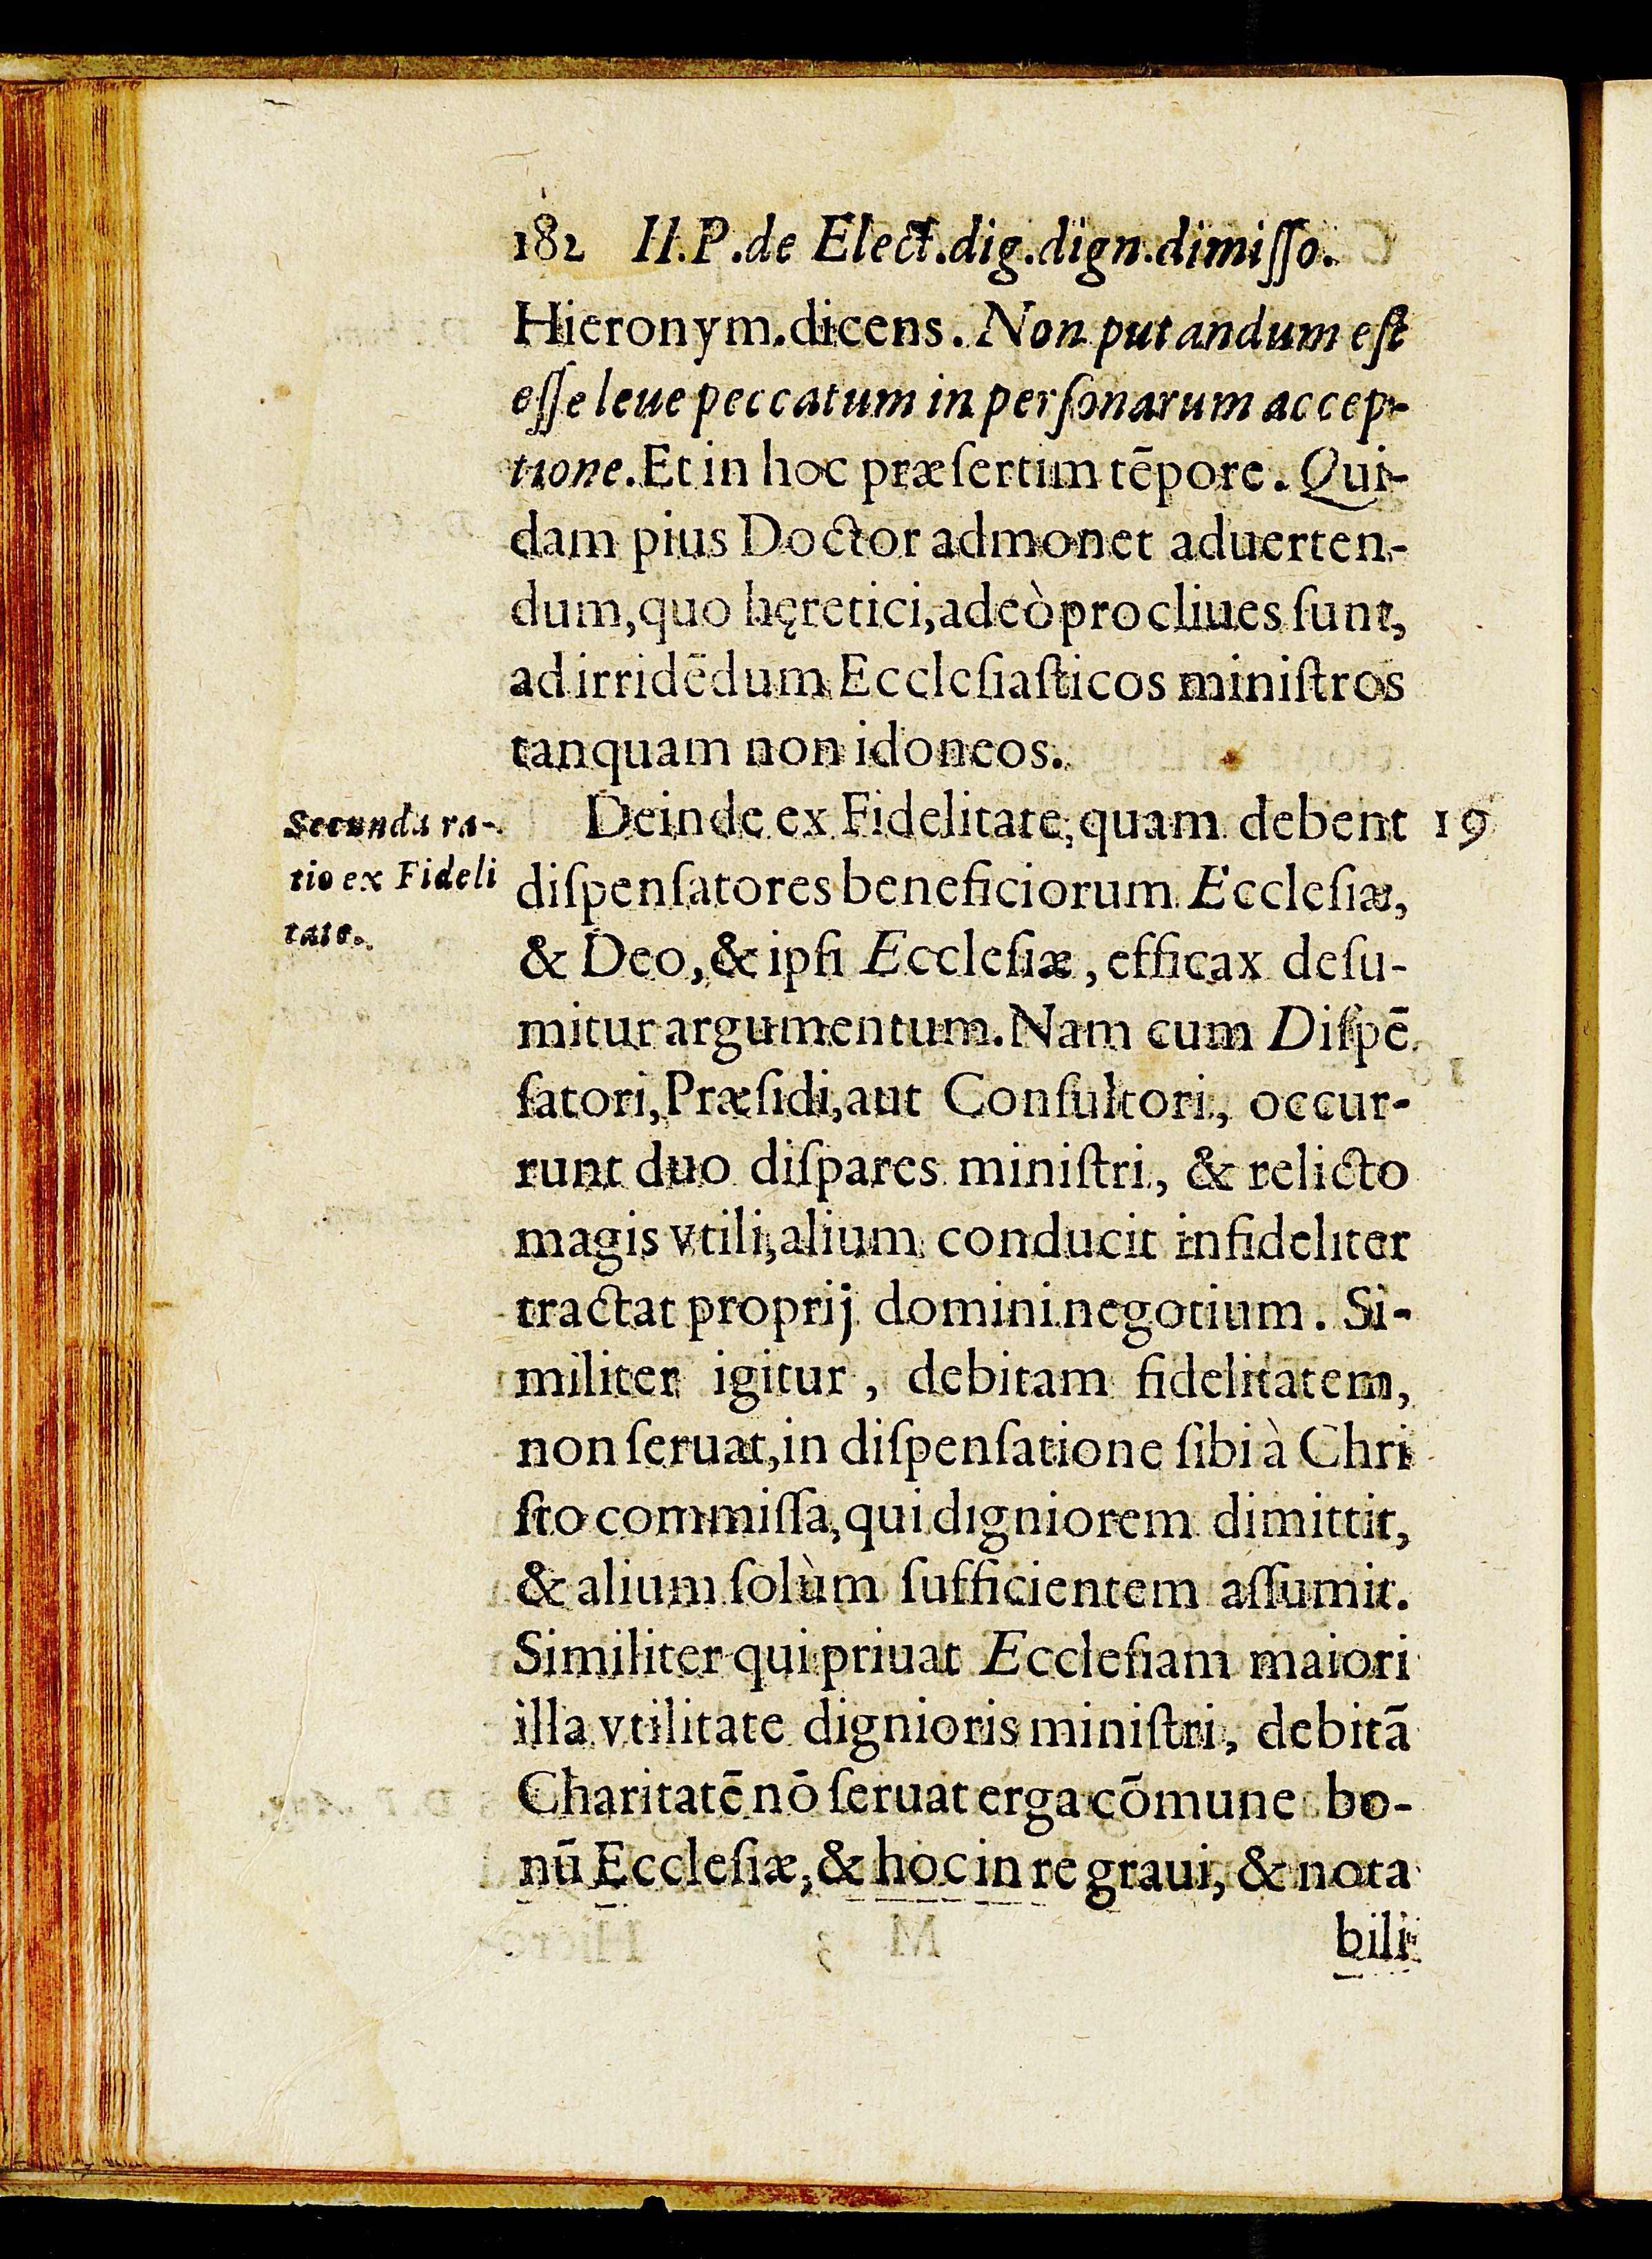 182 II.P.de Elect.dig.dign.dimiſſo.
Hieronym.dicens. Non putandum eſt
eſſe leue peccatum in perſonarum accep-
tione. Et in hoc præſertim tēpore. Qui-
dam pius Doctor admonet aduerten-
dum, quo hęretici, adeò procliues ſunt,
ad irridēdum Eccleſiaſticos miniſtros
tanquam non idoneos.
Secunda ra-
tio ex Fideli
tate.
Deinde ex Fidelitate, quam debent 19
diſpenſatores beneficiorum Eccleſiæ,
& Deo, & ipſi Eccleſiæ, efficax deſu-
mitur argumentum. Nam cum Diſpē
ſatori, Præſidi, aut Conſultori, occur-
runt duo diſpares miniſtri, & relicto
magis vtili, alium conducit infideliter
tractat proprij domini negotium. Si-
militer igitur, debitam fidelitatem,
non ſeruat, in diſpenſatione ſibi à Chri
ſto commiſſa, qui digniorem dimittit,
& alium ſolùm ſufficientem aſſumit.
Similiter qui priuat Eccleſiam maiori
illa vtilitate dignioris miniſtri, debitā
Charitatē nō ſeruat erga cōmune bo-
nū Eccleſiæ, & hoc in re graui, & nota
bili